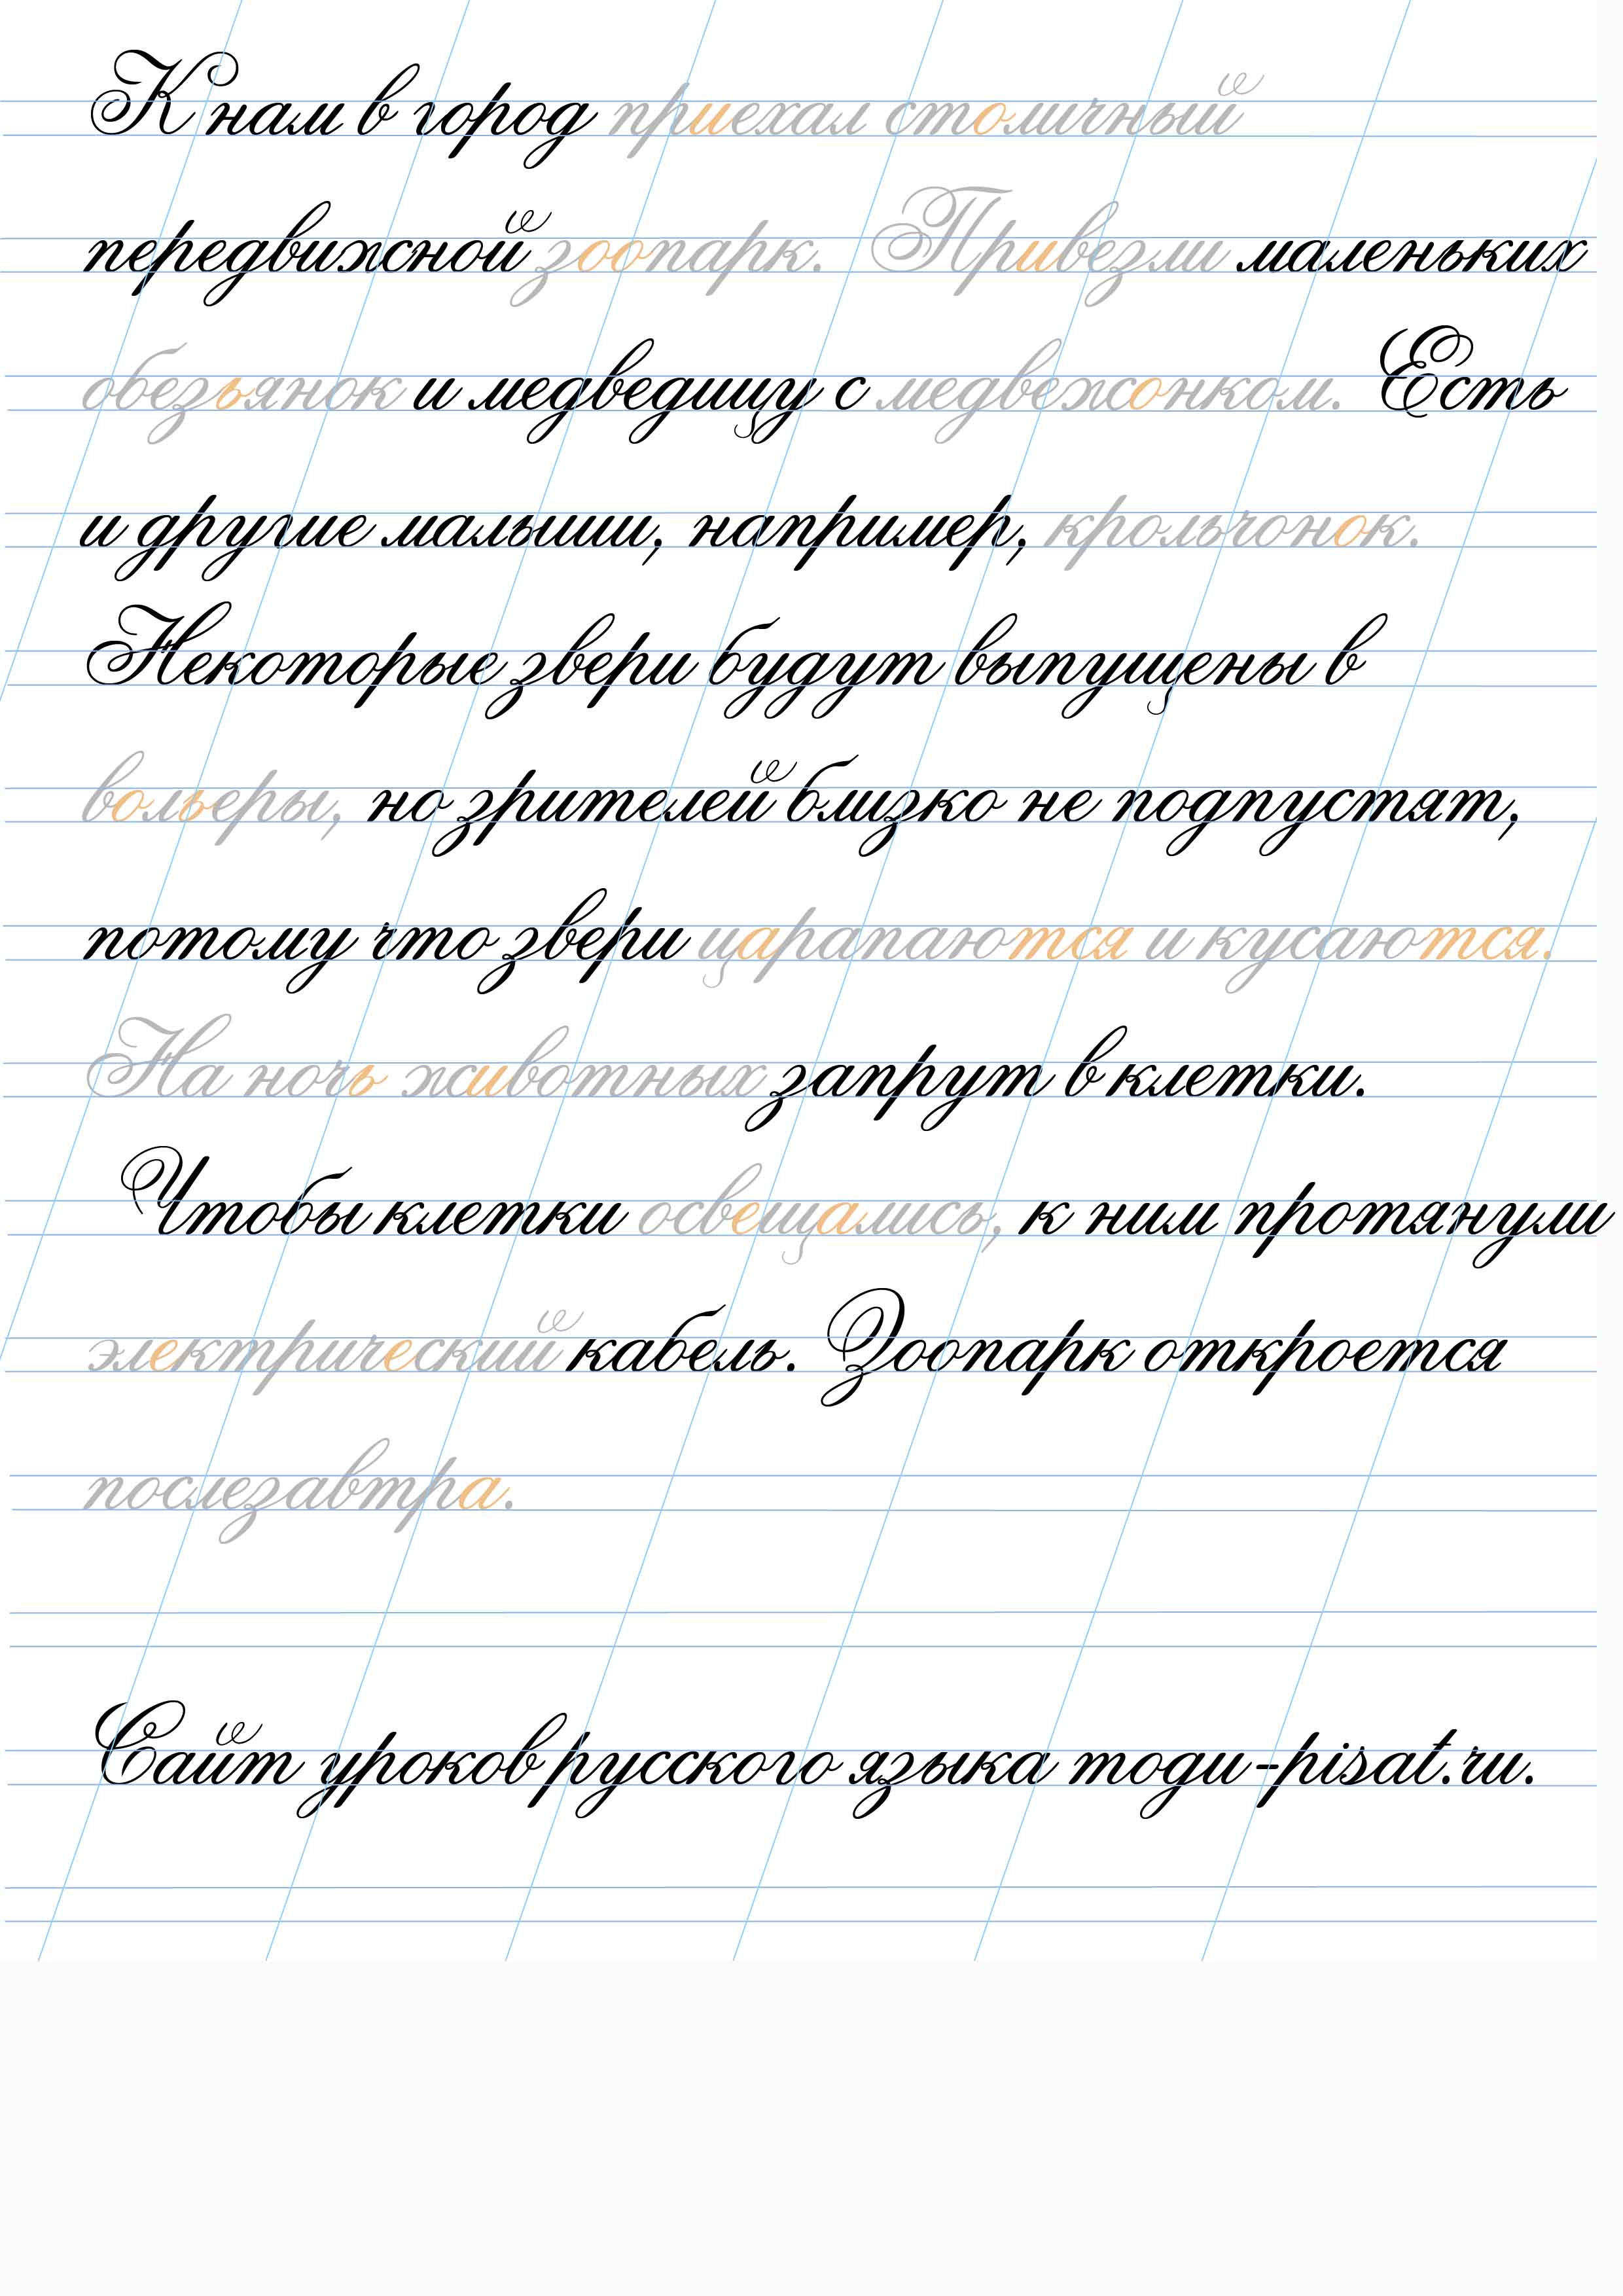 К нам в город приехал столичный
передвижной зоопарк. Привезли маленьких
обезьянок и медведицу с медвежонком. Есть
и другие малыши, например, крольчонок.
Некоторые звери будут выпущены в
вольеры, но зрителей близко не подпустят,
потому что звери царапаются и кусаются.
На ночь животных запрут в клетки.
Чтобы клетки освещались, к ним протянули
электрический кабель. Зоопарк откроется
послезавтра.
Сайт уроков русского языка mogu-pisat.ru.